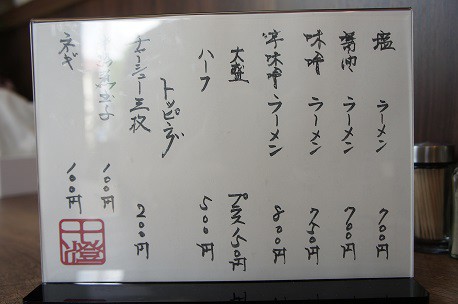 塩 ラーメン 700円
醤油 ラーメン 700円
味噌 ラーメン 750円
辛味噌 ラーメン 800円
大盛 プラス150円
ハーフ 500円
トッピング
チャーシュー三枚 200円
100円
ネギ 100円